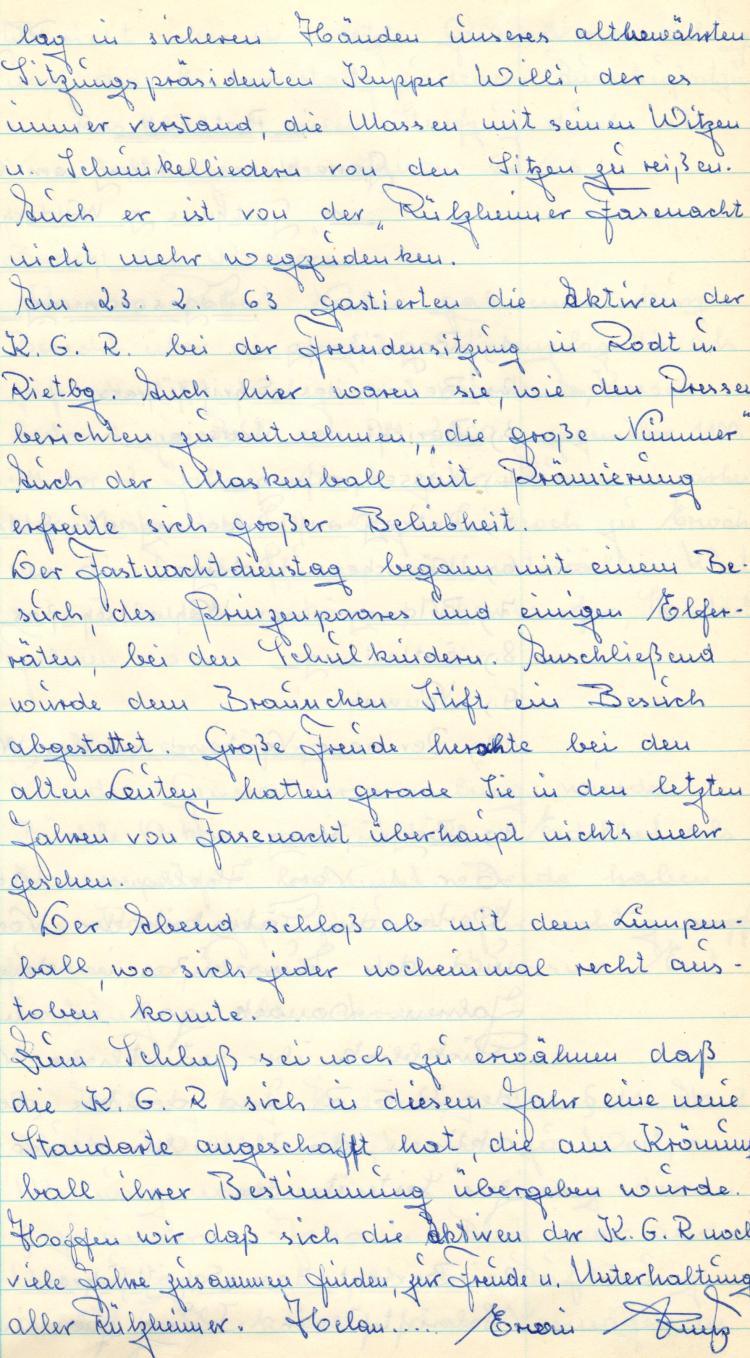 lag in sicheren Händen unseres altbewährten
Sitzungspräsidenten Kupper Willi, der es
immer verstand, die Massen mit seinen Witzen
u. Schunkelliedern von den Sitzen zu reißen.
Auch er ist von der „Rülzheimer Fasenacht
nicht mehr wegzudenken.
Am 23. 2. 63 gastierten die Aktiven der
K. G. R. bei der Fremdensitzung in Rodt u.
Rietbg. Auch hier waren sie, wie den Presse
berichten zu entnehmen, „die große Nummer"
Auch der Maskenball mit Prämierung
erfreute sich großer Beliebheit.
Der Fastnachtdienstag begann mit einem Be-
such, des Prinzenpaares und einigen Elfer-
räten, bei den Schulkindern. Anschließend
wurde dem Braun'chen Stift ein Besuch
abgestattet. Große Freude herschte bei den
alten Leuten, hatten gerade Sie in den letzten
Jahren von Fasenacht überhaupt nichts mehr
gesehen.
Der Abend schloß ab mit dem Lumpen-
ball, wo sich jeder nocheinmal recht aus-
toben konnte.
Zum Schluß sei noch zu erwähnen daß
die K. G. R sich in diesem Jahr eine neue
Standarte angeschafft hat, die am Krönung
ball ihrer Bestimmung übergeben wurde.
Hoffen wir daß sich die Aktiven der K. G. R noch
viele Jahre zusammen finden, zur Freude u. Unterhaltung
aller Rülzheimer. Helau..... Erwin